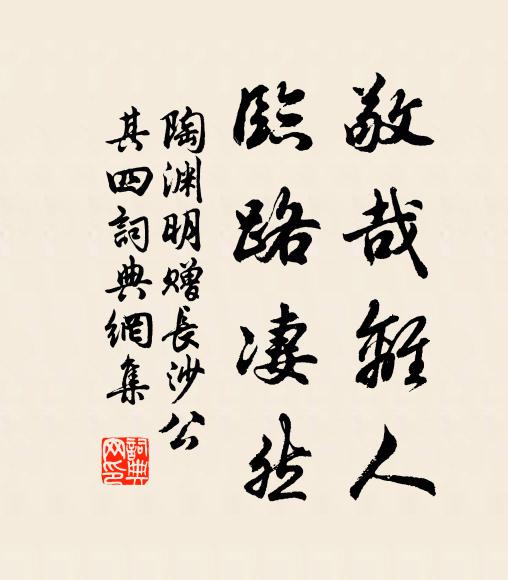 敬哉離人
臨路凄然
陶淵明贈長沙公
其四詞典網集
詞典
网印